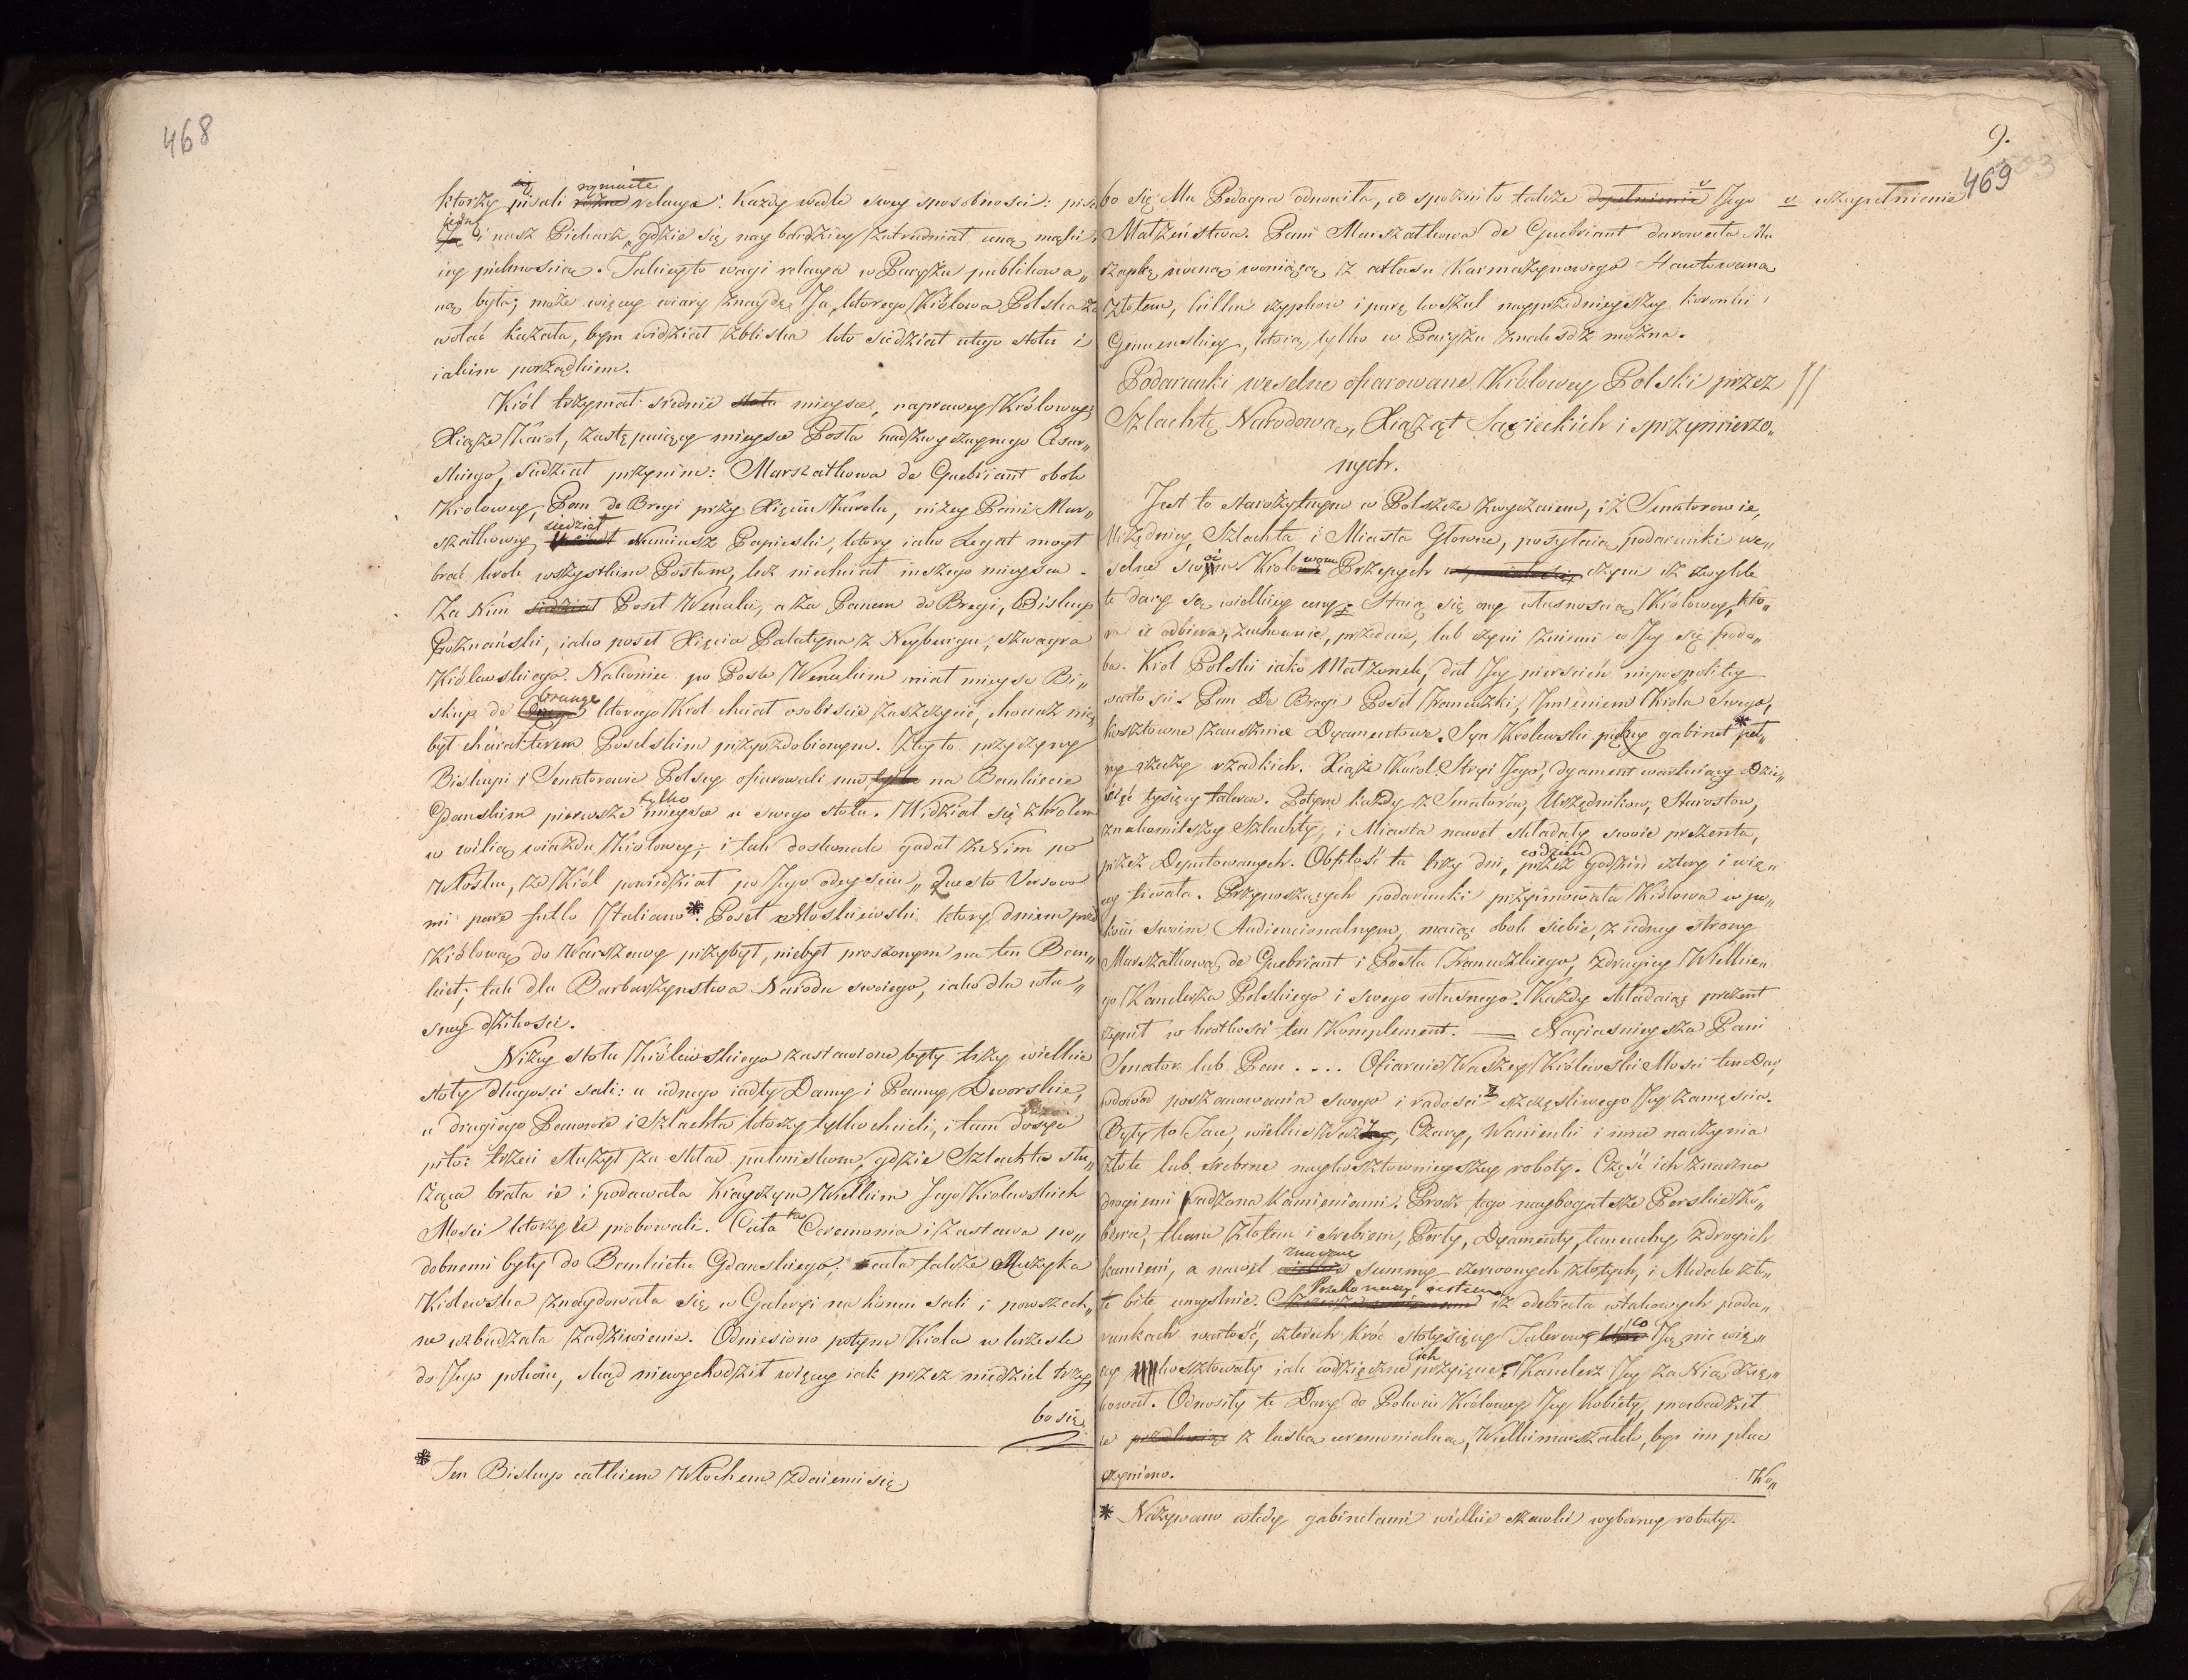 468
którzy pisali rozmaite relacye: Każdy wedle swey sposobnosci: pisa
i nasz Piekarz, gdzie się nay bardziey zatrudniał ceną mąki,
iey pięknoscią. Takieyto wagi relacya w Paryżu publikowa„
ną była; może więcey wiary znaydę Ja, którego Królowa Polska za
wołać kazała, bym widział zbliska kto siedział utego stołu i
iakim porządkiem.
Król trzymał srednie stołu mieysce, naprawey Królowey;
Xiąże Karol, zastępuiący mieysce Posła nadzwyczaynego Cesar„
skiego, siedział przynim: Marszałkowa de Guebriant obok
Krolowey, Pan de Bregi przy Xięciu Karolu, niżey Pani Mar„
szałkowey siedział Nunciusz Papieski, ktory iako Legat mogł
brać krok wszystkim Posłom, lecz niechciał inszego mieysca.
Za Nim siedział Poseł Wenecki, a za Panem de Bregi, Biskup
Poznański, iako poseł Xięcia Palatyna z Neyburgu, szwagra
Królewskiego. Nakoniec po Pośle Weneckim miał mieysce Bi„
skup de Orange ktorego Król chciał osobiscie zaszczycić, chociaż nie
był charakterem Poselskim przyozdobionym. Zteyto przyczyny
Biskupi i Senatorowie Polscy ofiarowali mu tylko na Bankiecie
Gdanskim pierwsze tylko mieysce u swego stołu. Widział się z Krolem
w wilią wiazdu Krolowey; i tak doskonale gadał z Nim po
Włosku, że Król powiedział po Jego odeysciu „Questo Vescovo
mi pare tutto Italiano*. Poseł Moskiewski, ktory dniem przed
Królową do Warszawy przybył, niebył proszonym na ten Ban„
kiet; tak dla Barbarzynstwa Narodu swoiego, iako dla wła„
sney dzikosci.
Niżey stołu Królewskiego zastawione były trzy wielkie
stoły długosci sali: u iednego iadły Damy i Panny Dworskie,
u drugiego Panowie i Szlachta ktorzy tylko chcieli, i tam dosyć
pito: trzeci służył za skład pulmiskom, gdzie Szlachta słu„
żąca brała ie i podawała Krayczym Wielkim Jego Krolewskich
Mosci ktorzy ie probowali. Cała ta Ceremonia i zastawa po„
dobnemi były do Bankietu Gdanskiego; cała także Muzyka
Krolewska znaydowała się w Galeryi na koncu sali i powszech„
ne wzbudzała zadziwienie. Odniesiono potym Krola w krzesle
do Jego pokoiu, skąd niewychodził więcey iak przez niedziel trzy,
bo się
* Ten Biskup całkiem Włochem zdaiemisię
9.
469
bo się Mu Pedogra odnowiła, co spozniło także dopełnienie Jego
uzupełnienie
Małżeństwa. Pani Marszałkowa de Guebriant darowała Mu
czapkę nocną woniącą z atłasu Karmazynowego Haftowaną
złotem, kilka czypkow i parę koszul nayprzednieyszey koronki
Genuenskiey, którą tylko w Paryżu znalesdź można.
Podarunki weselne ofiarowane Krolowey Polski przez
Szlachtę Narodową, Xiążąt Sąsieckich i sprzymierzo„
nych.
Jest to starożytnym w Polszcze zwyczaiem, iż Senatorowie,
Urzędnicy, Szlachta i Miasta Głowne, posyłaią podarunki we„
selne swoim Krolowom Przepych czyni iż zwykle
te dary są wielkiey ceny: Staią się ony własnoscią Krolowey, kto„
ra ie odbiera, zachowuie, przedaie, lub czyni zniemi co Jey się podo„
ba. Król Polski iako Małżonek, dał Jey pierscień niepospolitey
wartosci. Pan De Bregi Poseł Francuzki, Imieniem Króla Swego,
kosztowne Zausznice Dyamentowe. Syn Krolewski piękny gabinet* peł„
ny rzeczy rzadkich. Xiąże Karol Stryi Jego, dyament wartuiący dzie„
sięć tysięcy talerow. Potym każdy z Senatorów, Urzędnikow, Starostow,
znakomitszey Szlachty, i Miasta nawet składały swoie prezenta,
przez Deputowanych. Obfitość ta trzy dni, codzień przez godzin cztery i wię„
cey trwała. Przynoszących podarunki przyimowała Krolowa w po„
koiu swoim Audiencionalnym, maiąc obok siebie, z iedney strony
Marszałkową de Guebriant i Posła Francuzkiego, zdrugiey Wielkie„
go Kanclerza Polskiego i swego własnego. Każdy składaiąc prezent
czynił w krotkości ten Komplement. — Nayiasnieysza Pani
Senator lub Pan .... Ofiaruie Waszey Królewskiey Mosci ten Dar,
wdowod poszanowania swego i radosci z szczęsliwego Jey zamęscia.
Były to Tace, wielkie Wazy, Czary, Wanienki i inne naczynia
złote lub srebrne naykosztownieyszey roboty. Część ich znaczna
drogiemi sadzona kamieniami. Procz tego naybogatsze Perskie Ko„
bierce, tkane złotem i srebrem, Perły, Dyamenty, łancuchy zdrogich
kamieni, a nawet znaczne summy czerwonych złotych, i Medale zło„
te bite umyslnie. Przekonany iestem iż odebrała wtakowych poda„
runkach wartość, czterech kroć stotysięcy Talerow, co Ją nic wię„
cey kosztowały iak wdzięczne ich przyięcie. Kanclerz Jey za Nią dzię„
kował. Odnosiły te Dary do Pokoiu Królowey Jey Kobiety, prowadził
ie z laską ceremonialną, Wielki marszałek, by im plac
czyniono.
Ko„
* Nazywano wtedy gabinetami wielkie szawki wyborney roboty.